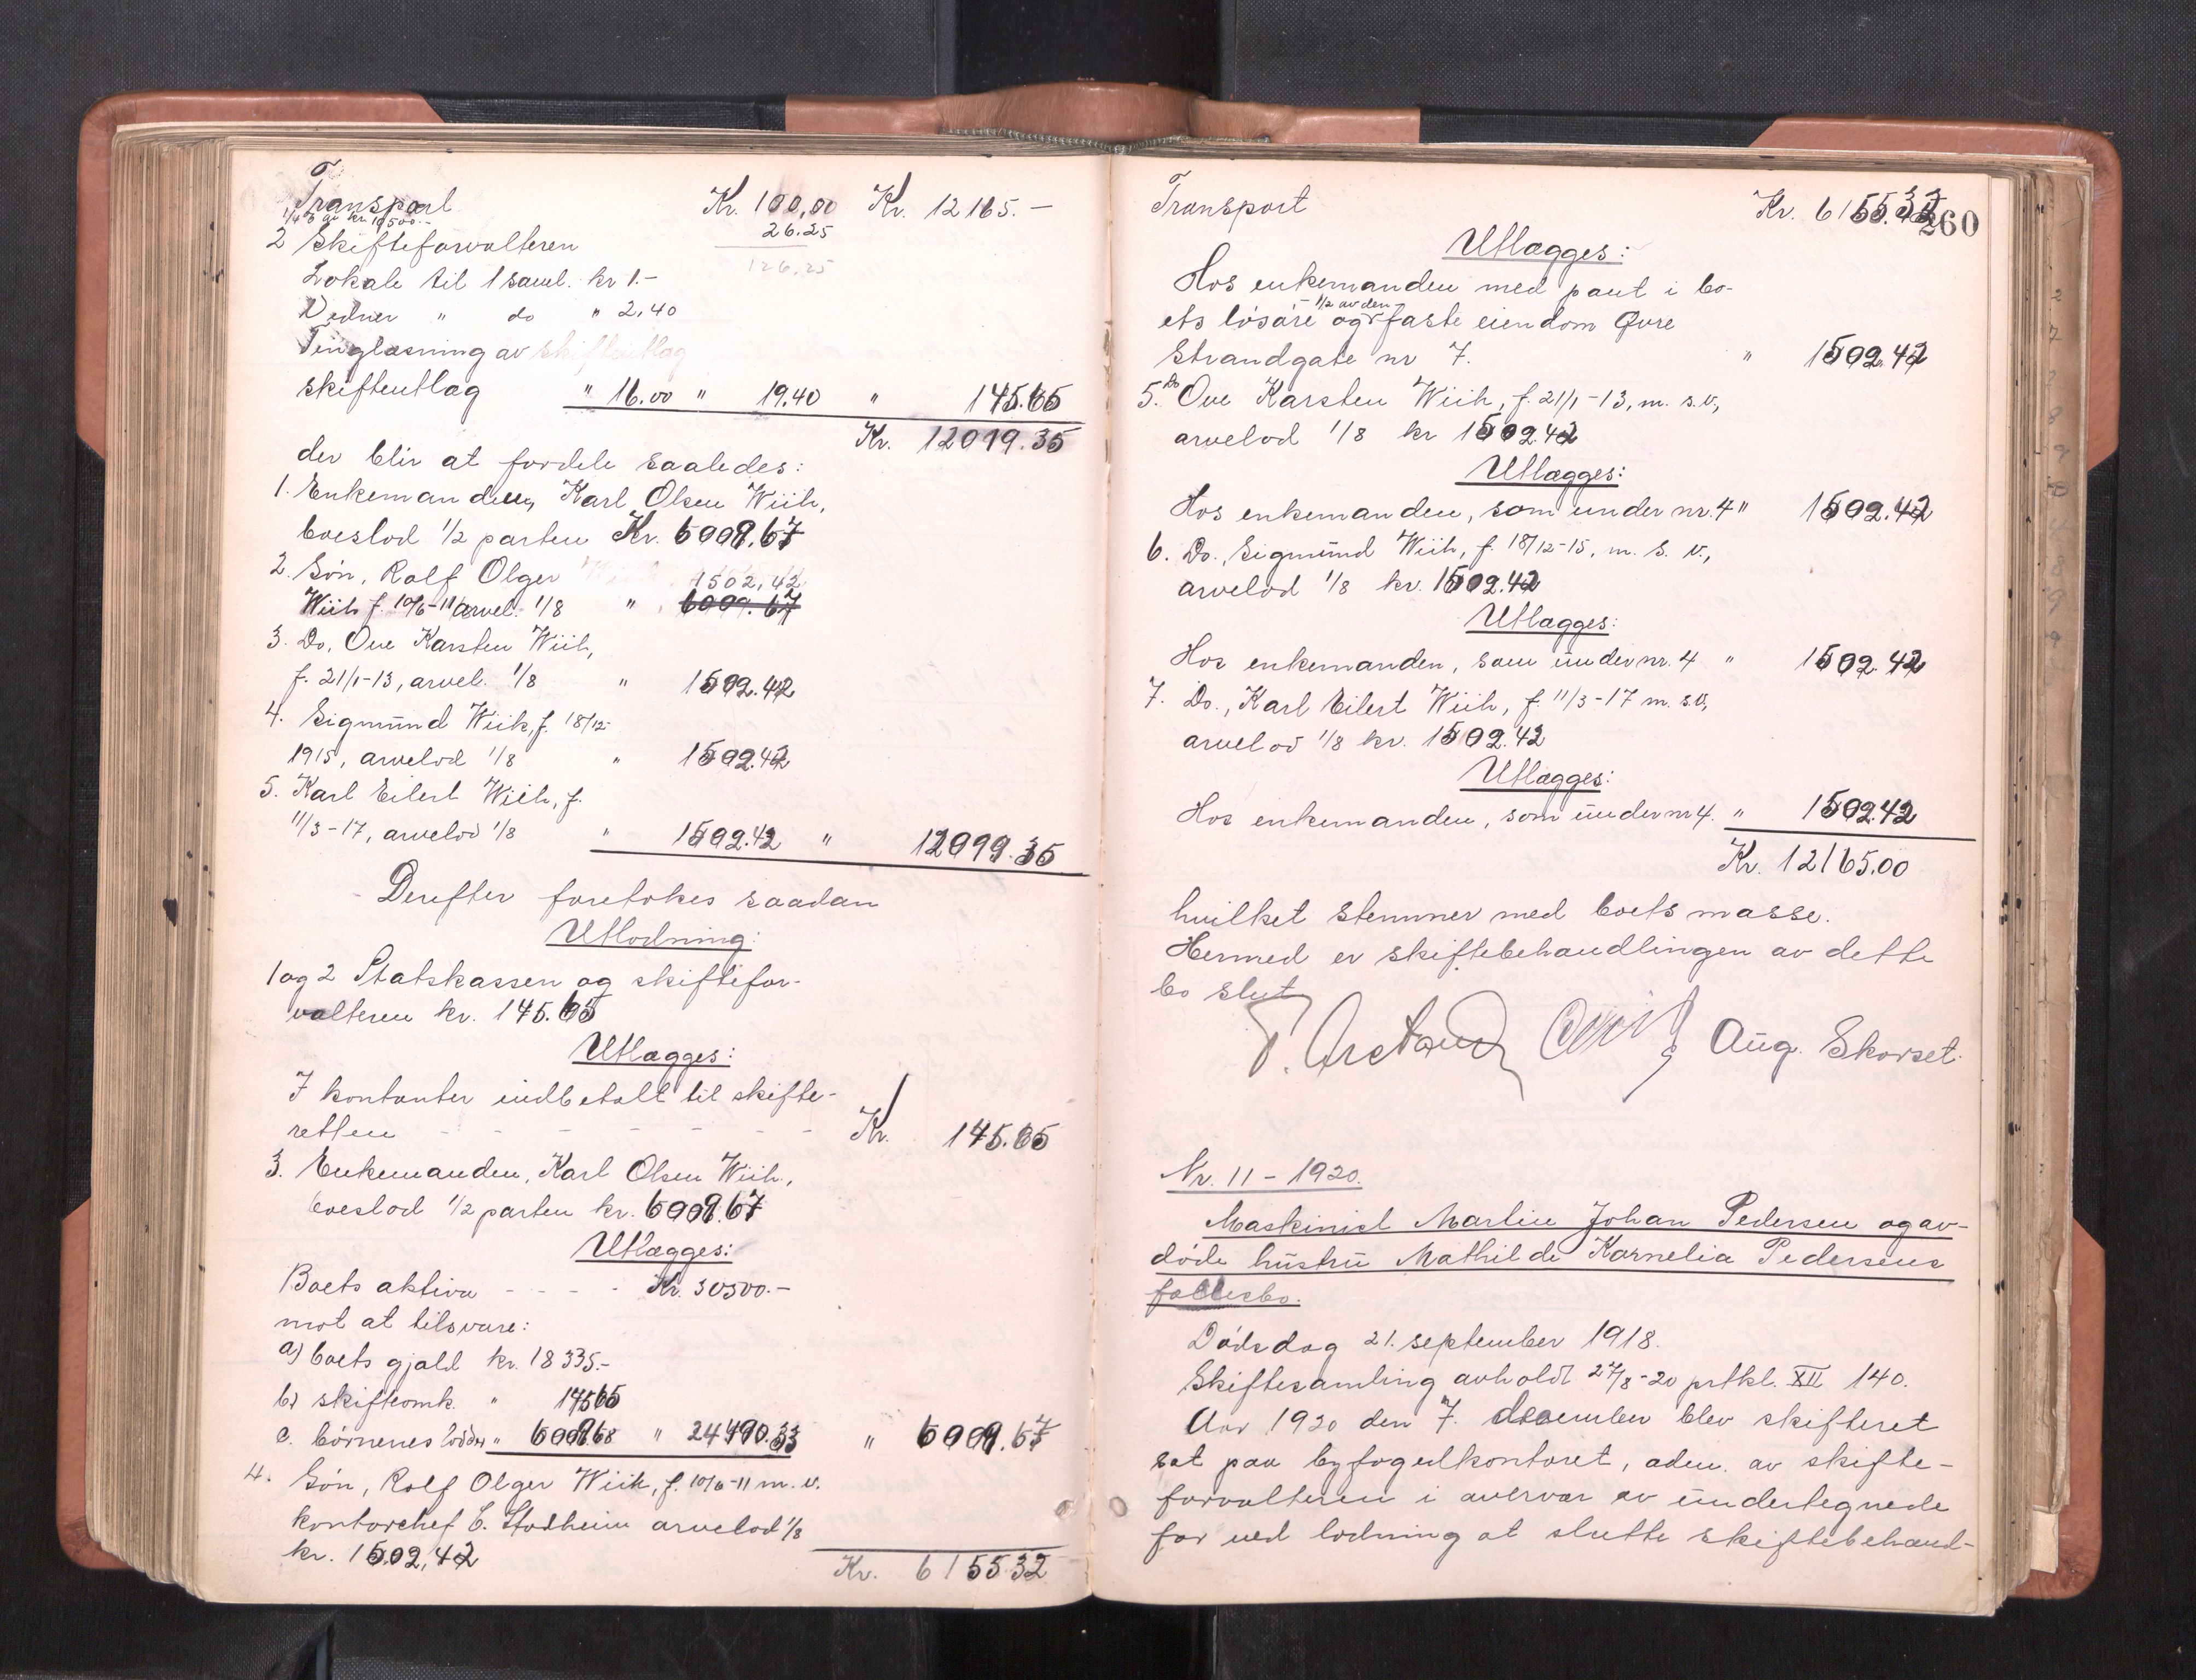 Transport Kr. 100,00 Kr. 12165.-
1/4 % av kr. 10500.-
2 Skifteforvalteren 26.25
Lokale til 1 saml. kr 1.- 126.25
Vedner " do " 2,40
Tinglæsning av skifteutlag
skifteutlag " 16.00 " 19.40 " 145.65
Kr. 12019.35
der blir at fordele saaledes:
1. Enkemanden, Karl Olsen Wiik,
boeslod 1/2 parten Kr. 6009.67
2. Søn, Rolf Olger 1502,42
Wiik f. 10/6-11 arvel. 1/8 " 6009.67
3. Do, Ove Karsten Wiik,
f. 21/1-13, arvel. 1/8 " 1502.42
4. Sigmund Wiik, f. 18/12-
1915, arvelod 1/8 " 1502.42
5. Karl Eilert Wiik, f.
11/3-17, arvelod 1/8 " 1502.42 " 12019.35
Derefter foretokes saadan
Utlodning:
1 og 2 Statskassen og skiftefor-
valteren kr. 145.65
Utlægges:
I kontanter indbetalt til skifte-
retten - - - - - - - Kr. 145.65
3. Enkemanden, Karl Olsen Wiik,
boeslod 1/2 parten kr. 6009.67
Utlægges:
Boets aktiva - - - - Kr. 30500.-
mot at tilsvare:
a) boets gjæld kr. 18335.-
b) skifteomk. " 145.65
c. børnenes lodder " 6009.68 " 24490.33 " 6009.67
4. Søn, Rolf Olger Wiik, f. 10/6-11 m. v.
kontorchef E. Stodheim arvelod 1/8
kr. 1502,42
Kr. 6155.32
Transport Kr. 6155.32
260
Utlægges:
Hos enkemanden med pant i bo-
- 1/2 av den -
ets løsøre og faste eiendom Øvre
Strandgate nr 7. " 1502.42
5. Do Ove Karsten Wiik, f. 21/1-13, m. s.v.,
arvelod 1/8 kr 1502.42
Utlægges:
Hos enkemanden, som under nr. 4 " 1502.42
6. Do., Sigmund Wiik, f. 18/12-15, m. s. v.,
arvelod 1/8 kr. 1502.42
Utlægges:
Hos enkemanden, som under nr. 4 " 1502.42
7. Do., Karl Eilert Wiik, f. 11/3-17 m. s.v.,
arvelod 1/8 kr. 1502.42
Utlægges:
Hos enkemanden, som under nr 4. " 1502.42
Kr. 12165.00
hvilket stemmer med boets masse.
Hermed er skiftebehandlingen av dette
bo slut
Aug. Skorset.
Nr. 11 - 1920.
Maskinist Martin Johan Pedersen og av-
døde hustru Mathilde Kornelia Pedersens
fællesbo.
Dødsdag 21. september 1918.
Skiftesamling avholdt 27/8-20 prtkl. XII 140.
Aar 1920 den 7. december blev skifteret
sat paa byfogedkontoret, adm. av skifte-
forvalteren i overvær av undertegnede
for ved lodning at slutte skiftebehand-